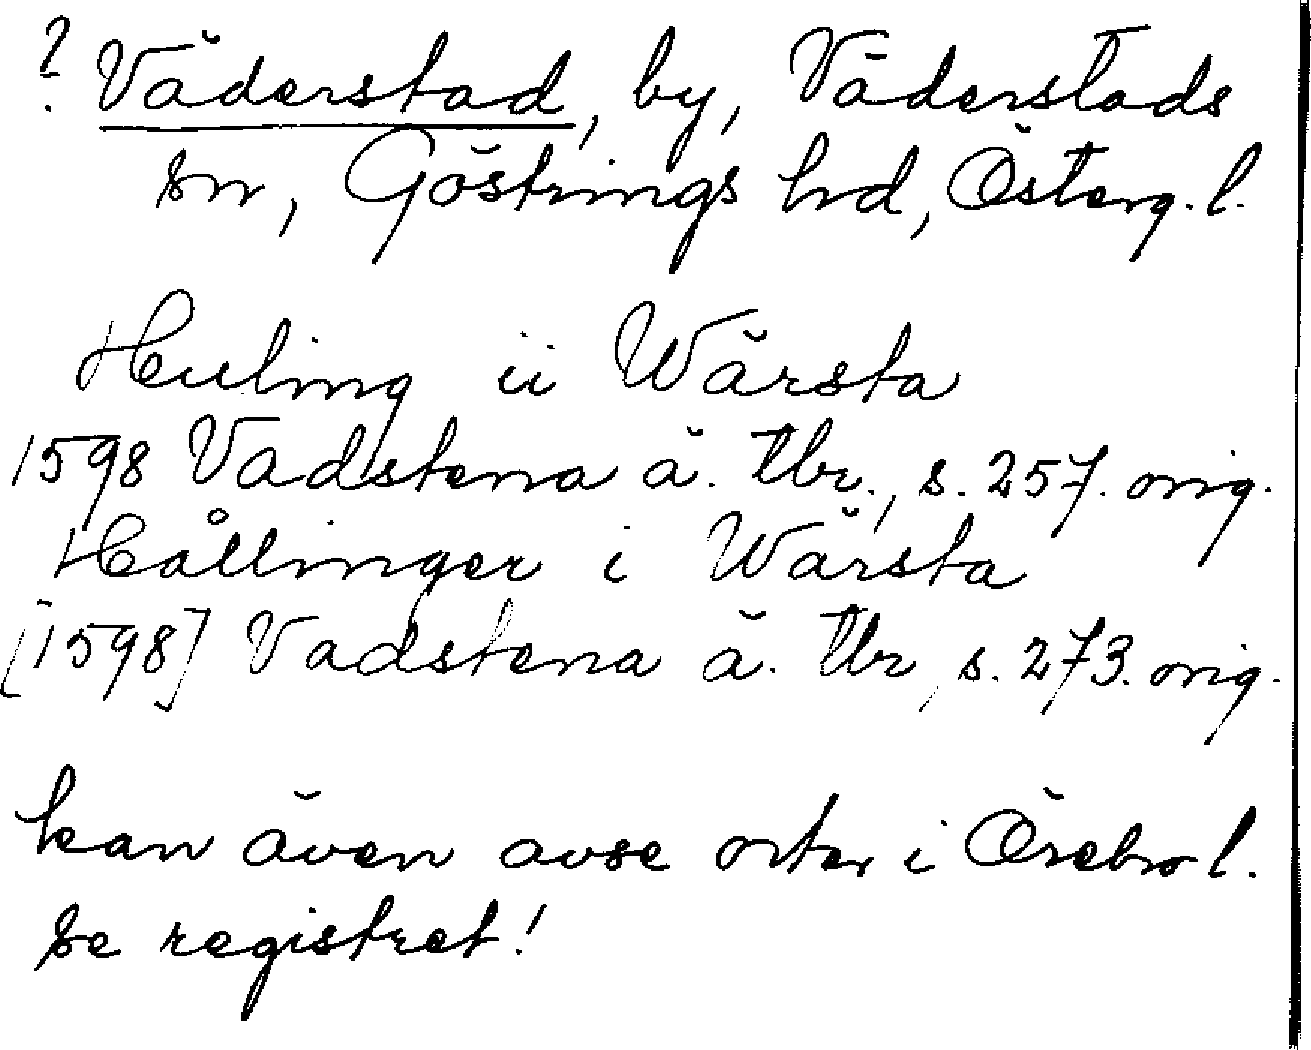 ? Väderstad, by, Väderstads
sn, Göstrings hrd, Österg. l.
Huling ii Wärsta
1598 Vadstena ä. tbr., s. 257. orig.
Hållinger i Wärsta
[1598] Vadstena ä. tbr, s. 273. orig.
kan även avse orter i Örebro l.
se registret!